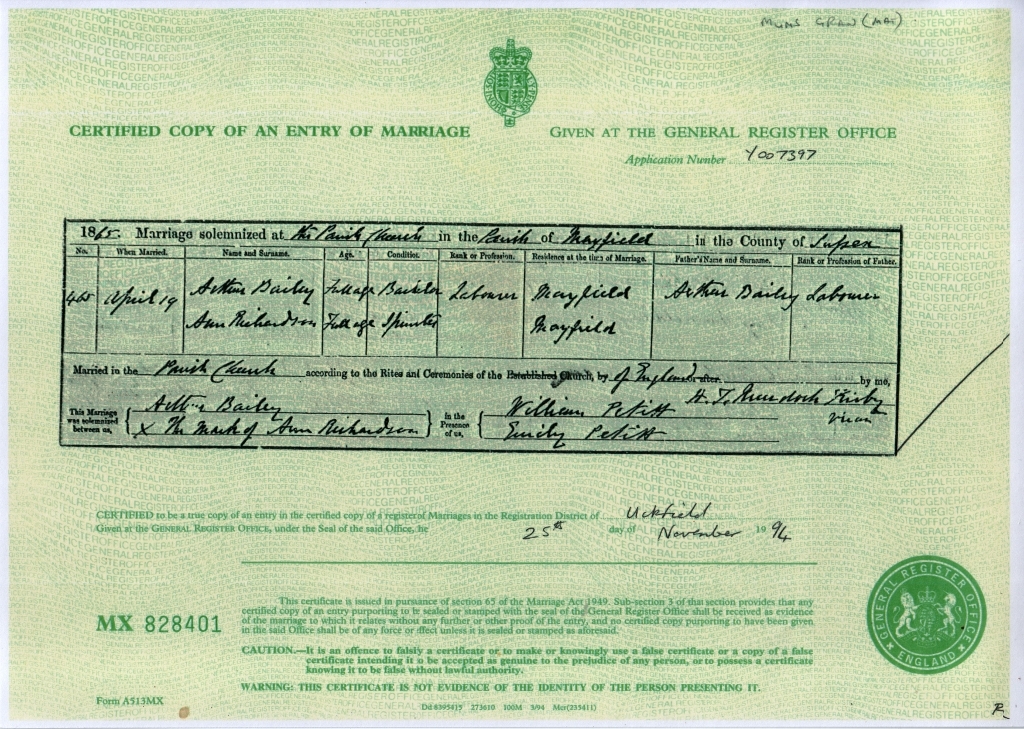 MUMS GRAN (MAT)
CERTIFIED COPY OF AN ENTRY OF MARRIAGE GIVEN AT THE GENERAL REGISTER OFFICE
Application Number Y007397
1865. Marriage solemnized at the Parish Church in the Parish of Mayfield in the County of Sussex
No. When Married. Name and Surname. Age. Condition. Rank or Profession. Residence at the time of Marriage. Father's Name and Surname. Rank or Profession of Father.
465 April 19 Arthur Bailey Full age Bachelor Labourer Mayfield Arthur Bailey Labourer
Ann Richardson Full age Spinster Mayfield
Married in the Parish Church according to the Rites and Ceremonies of the Established Church, by of England or after by me,
This Marriage was solemnized between us, Arthur Bailey In the Presence of us, William Petitt H. T. Murdoch Kirby
X The mark of Ann Richardson Emily Petitt Vicar
CERTIFIED to be a true copy of an entry in the certified copy of a register of Marriages in the Registration District of Uckfield
Given at the GENERAL REGISTER OFFICE, under the Seal of the said Office, the 25th day of November 1994
This certificate is issued in pursuance of section 65 of the Marriage Act 1949. Sub-section 3 of that section provides that any
certified copy of an entry purporting to be sealed or stamped with the seal of the General Register Office shall be received as evidence
of the marriage to which it relates without any further or other proof of the entry, and no certified copy purporting to have been given
in the said Office shall be of any force or effect unless it is sealed or stamped as aforesaid.
MX 828401
CAUTION.—It is an offence to falsify a certificate or to make or knowingly use a false certificate or a copy of a false
certificate intending it to be accepted as genuine to the prejudice of any person, or to possess a certificate
knowing it to be false without lawful authority.
WARNING: THIS CERTIFICATE IS NOT EVIDENCE OF THE IDENTITY OF THE PERSON PRESENTING IT.
GENERAL REGISTER OFFICE
ENGLAND
Form A513MX
Dd 8395415 273610 100M 3/94 Mcr(235411)
R